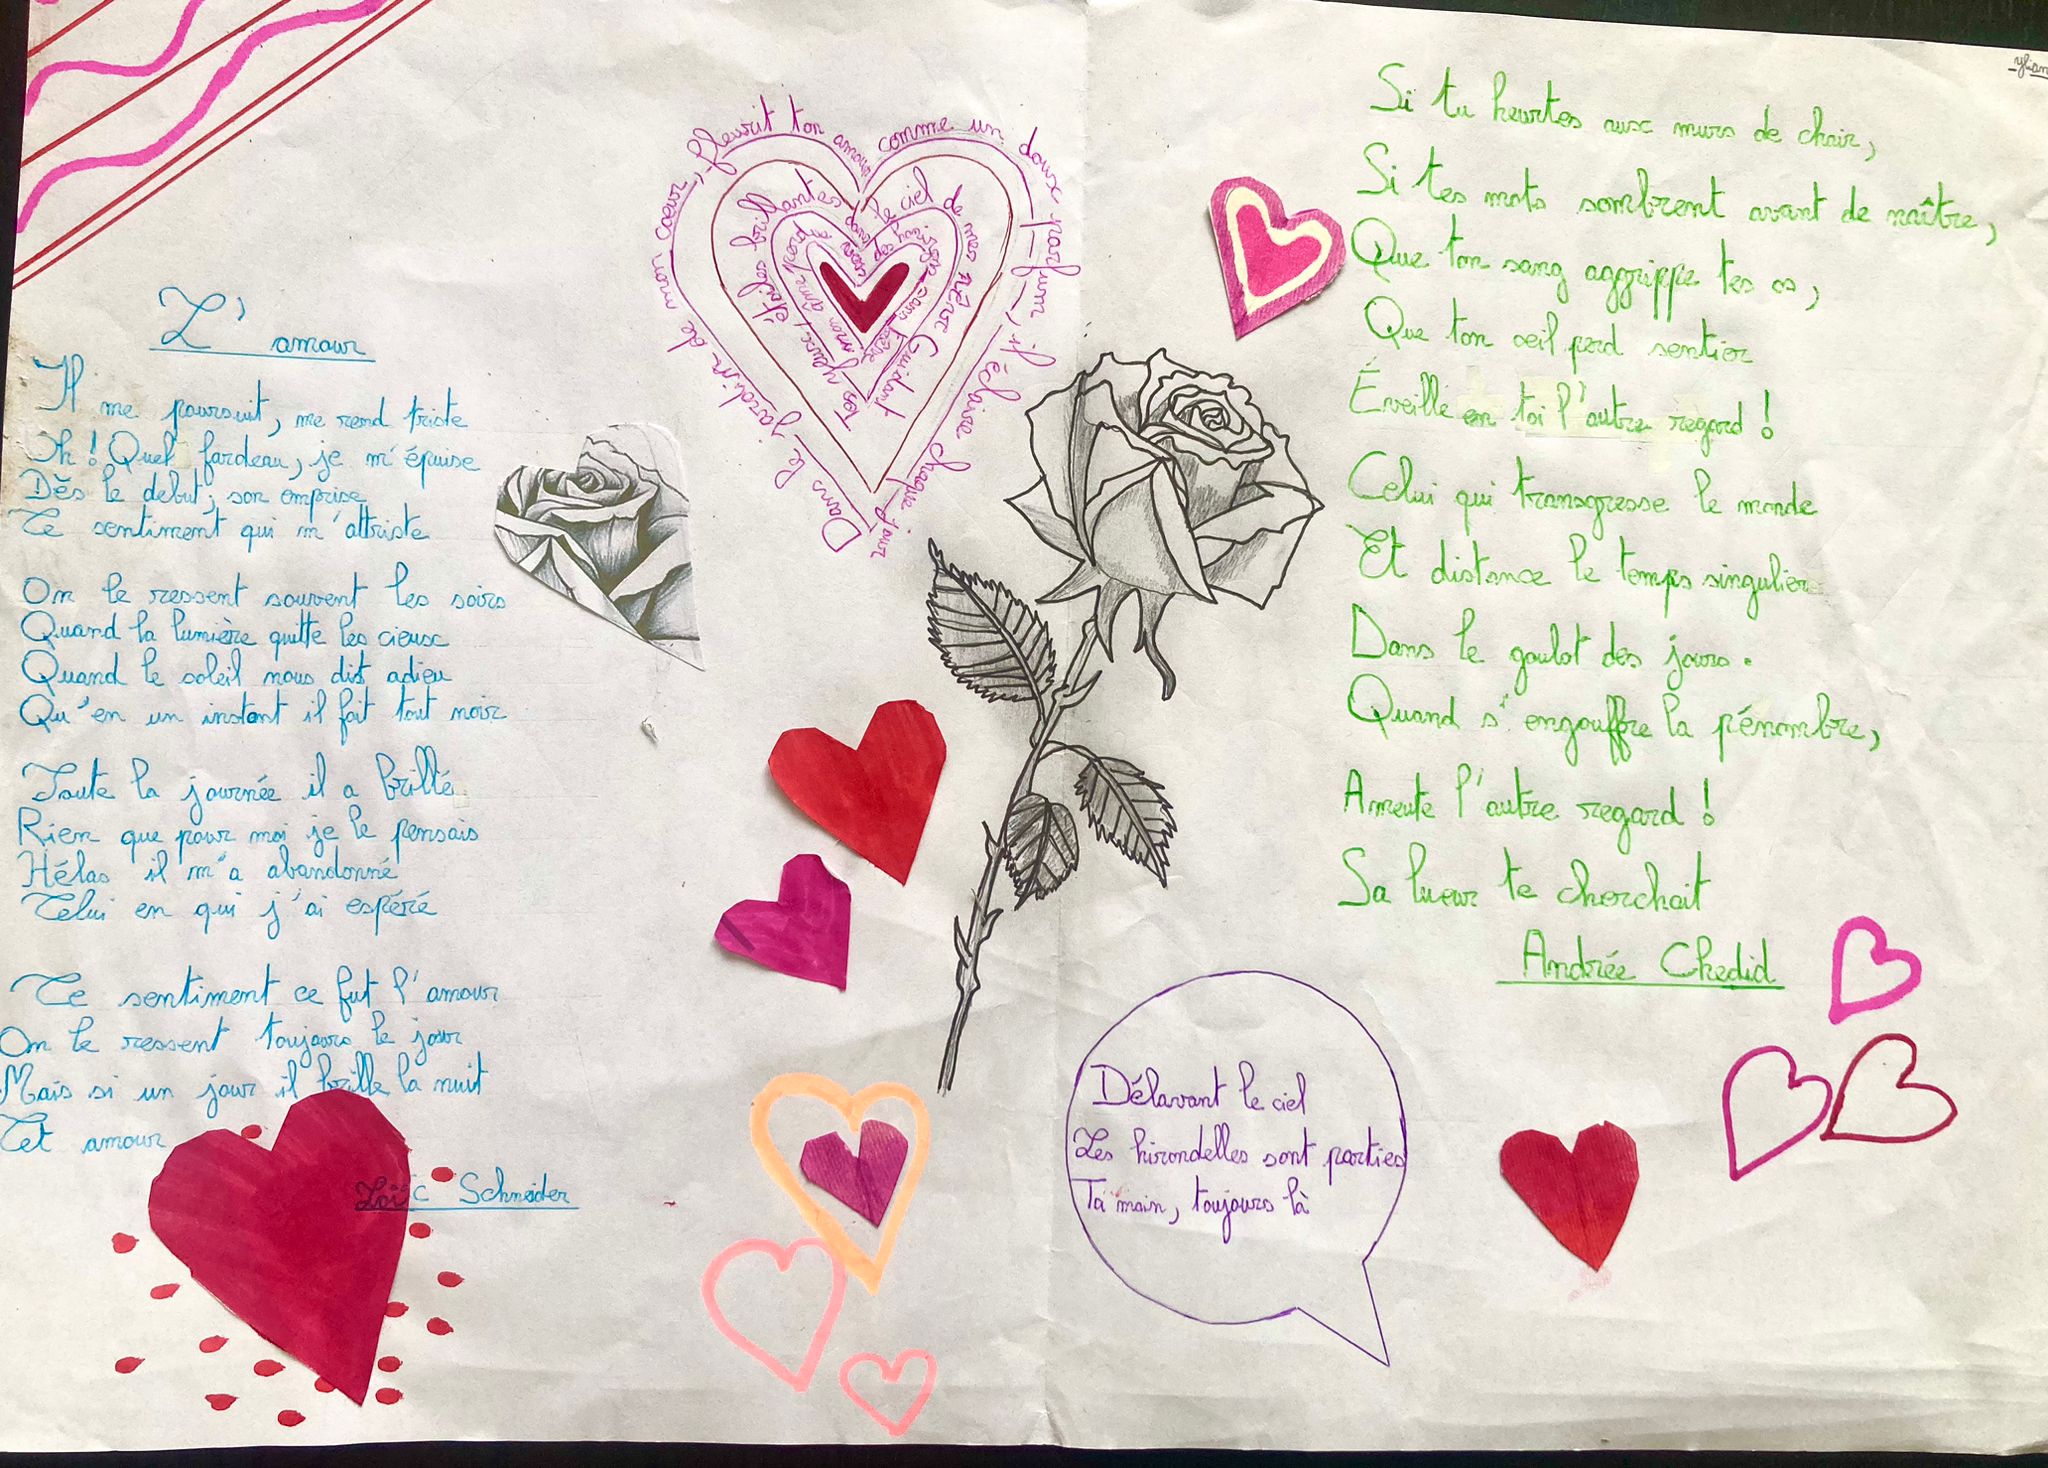 L'amour
Il me poursuit, me rend triste
Oh ! Quel fardeau, je m'épuise
Dès le debut, son emprise
Ce sentiment qui m'attriste
On le ressent souvent les soirs
Quand la lumière quitte les cieux
Quand le soleil nous dit adieu
Qu'en un instant il fait tout noir
Toute la journée il a brillé
Rien que pour moi je le pensais
Hélas il m'a abandonné
Celui en qui j'ai espéré
Ce sentiment ce fut l'amour
On le ressent toujours le jour
Mais si un jour il brille la nuit
Cet amour
Loïc Schneider
Dans le jardin de mon cœur, fleurit ton amour comme un doux parfum, il éclaire chaque jour
Tes yeux, étoiles brillantes dans le ciel de mes Guidant
mon âme
ylian
Si tu heurtes aux murs de chair,
Si tes mots sombrent avant de naître,
Que ton sang aggrippe tes os,
Que ton oeil perd sentier
Éveille en toi l'autre regard !
Celui qui transgresse le monde
Et distance le temps singulier
Dans le goulot des jours.
Quand s'engouffre la pénombre,
Ameute l'autre regard !
Sa lueur te cherchait
Andrée Chedid
Délavant le ciel
Les hirondelles sont parties
Ta main, toujours là